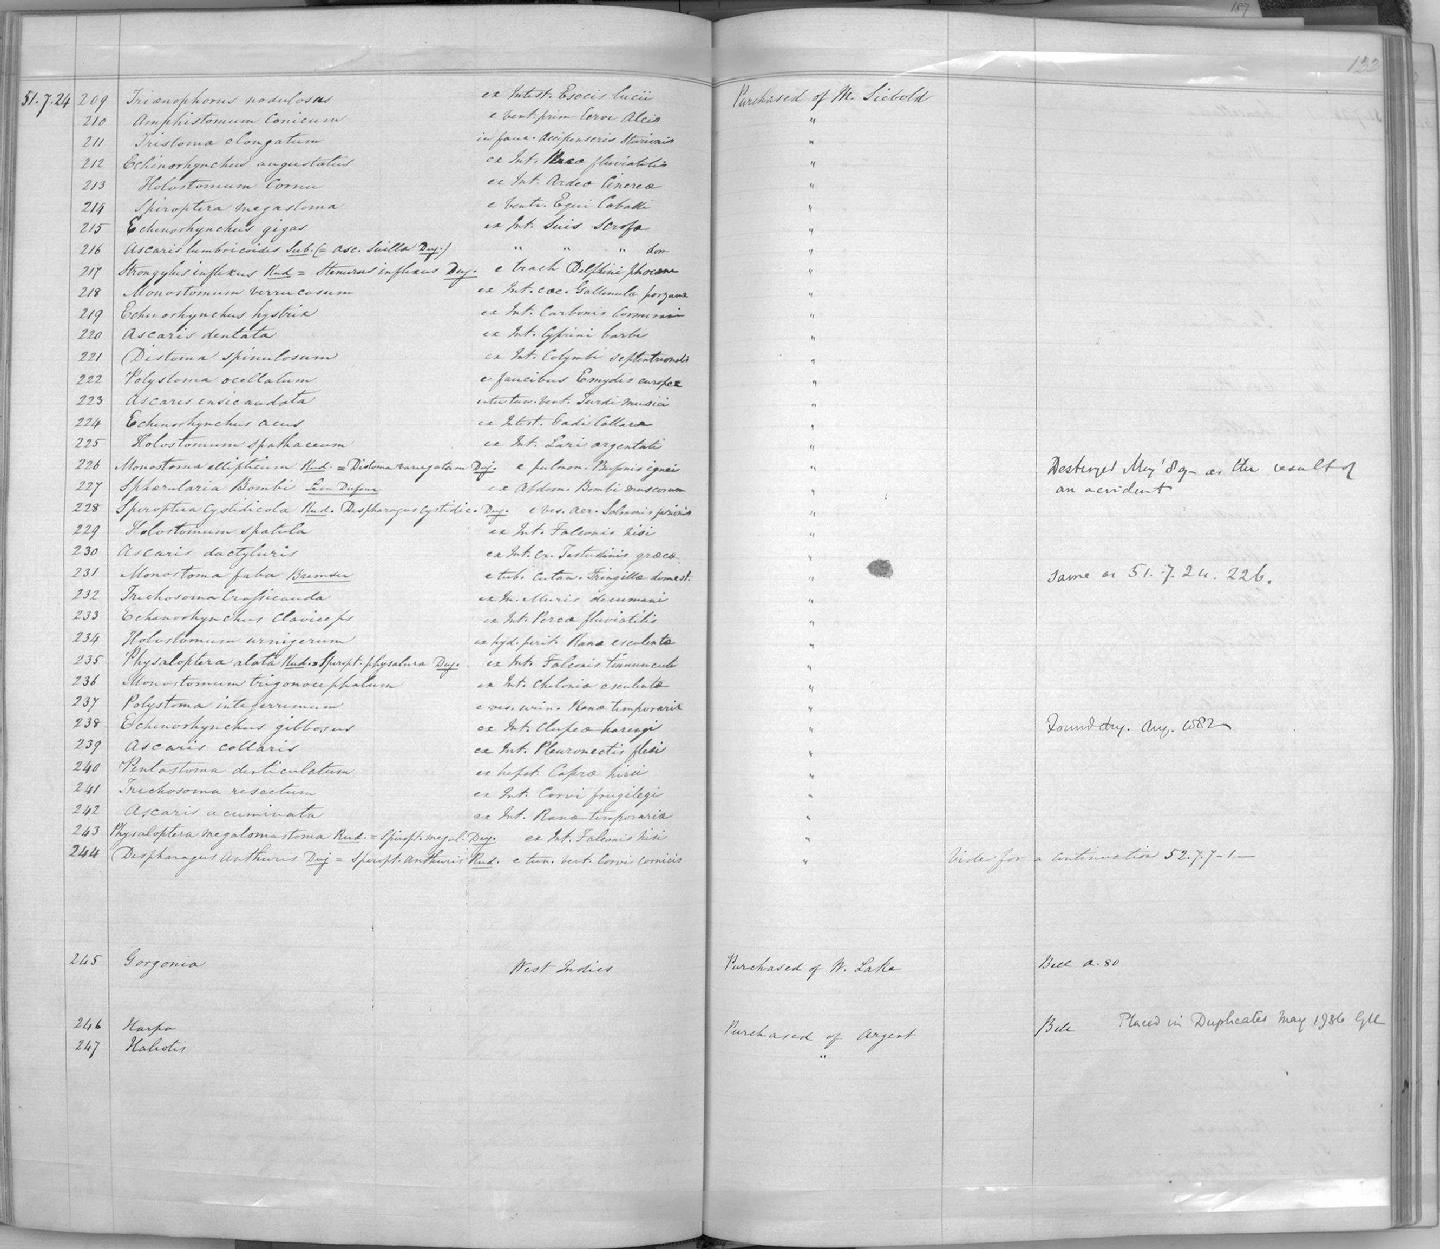 187
132
51.7.24 209 Triænophorus nodulosus ex Intest. Esocis lucii Purchased of M. Siebold
210 Amphistomum Conicum e vent. prim Cervi Alcis "
211 Tristoma elongatum in fauc. Accipenseris Sturionis "
212 Echinorhynchus angustatus ex Int. fluviatilis "
213 Holostomum Cornu ex Int. Ardeæ Cinereæ "
214 Spiroptera megastoma e ventr. Equi Caballi "
215 Echinorhynchus gigas ex Int. Suis Scrofæ "
216 Ascaris lumbricoides (= asc. Suilla Duj.) " " " dom "
217 Strongylus inflexus Rud = Stenurus inflexus Duj. e trach Delphini phocænæ "
218 Monostomum verrucosum ex Int. cæc. Gallinulæ porzanæ "
219 Echinorhynchus hystrix ex Int. Carbonis Cormorani "
220 Ascaris dentata ex Int. Cyprini barbi "
221 Distoma spinulosum ex Int. Colymbi septentrionalis "
222 Polystoma ocellatum e faucibus Emydis europææ "
223 Ascaris ensicaudata vent. Turdi musici "
224 Echinorhynchus acus ex Intest. Gadi Callariæ "
225 Holostomum spathaceum ex Int. Lari argentati "
226 Monostoma ellipticum Rud. = Distoma variegatum Duj. e pulmon. Bufonis ignei " Destroyed May '89 as the result of
an accident
227 Sphærularia Bombi Léon Dufour ex Abdom. Bombi muscorum "
228 Spiroptera Cystidicola Rud. Dispharagus Cystidic. Duj. e ves. aer. Salmonis farionis "
229 Holostomum spatula ex Int. Falconis nisi "
230 Ascaris dactyluris ex Int. cr. Testudinis græcæ "
231 Monostoma faba Bremser e tub. cutan. Fringillæ domest. " same as 51.7.24.226.
232 Trichosoma Crassicauda Muris decumani "
233 Echinorhynchus Claviceps ex Int. Percæ fluviatilis "
234 Holostomum urnigerum ex hyd. perit. Ranæ esculentæ "
235 Physaloptera alata Rud. = Spiropt. physalura Duj. ex Int. Falconis tinnunculi "
236 Monostomum trigonocephalum ex Int. Cheloniæ esculentæ "
237 Polystoma integerrimum e ves. urin. Ranæ temporariæ "
238 Echinorhynchus gibbosus ex Int. Clupeæ harengi " Found dry. Aug. 1882
239 Ascaris collaris ex Int. Pleuronectis flesi "
240 Pentastoma denticulatum ex hepat. Capræ hirci "
241 Trichosoma resectum ex Int. Corvi frugilegi "
242 Ascaris acuminata ex Int. Ranæ temporariæ "
243 Physaloptera megalomastoma Rud. = Spiropt. megal. Duj. ex Int. Falconis nisi "
244 Dispharagus Anthuris Duj = Spiropt. Anthuris Rud. e tun. vent. Corvi cornicis " Vide for a continuation 52.7.7-1—
245 Gorgonia West Indies Purchased of W. Lake Bell a. 80
246 Harpa Purchased of Argent Bell Placed in Duplicates May 1936
247 Haliotis "